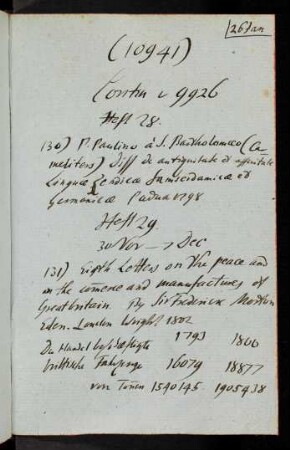 26 Jan
(10941)
Contin v 9926
Heft 28.
130) P. Paulino à S. Bartholomaeo (Car
meliters) Diss de antiquitate et affinitate
Linguae Zendicae Samscrdamicae et
Germanicae Padua 1798
Heft 29
30 Nov – 7 Dec
131) Eigth Letters on the peace and
in the comerce and manufactures of
Great britain. By Sir Frederick Morton
Eden. London Wright 1802
Der Handel beschäftigte 1793 1800
brittische Fahrzeuge 16079 18877
von Tonen 1540145. 1905438